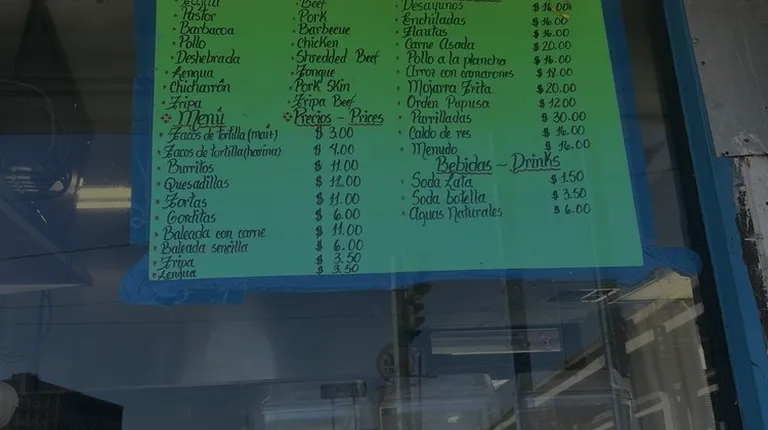 Beef
Pastor
Pork
Barbacoa
Barbecue
Pollo
Chicken
Deshebrada
Shredded Beef
Lengua
Tongue
Chicharrón
Pork Skin
Tripa
Tripa Beef
Menú
Precios - Prices
Tacos de tortilla (maíz) $ 3.00
Tacos de tortilla (harina) $ 4.00
Burritos $ 11.00
Quesadillas $ 12.00
Tortas $ 11.00
Gorditas $ 6.00
Baleada con carne $ 11.00
Baleada sencilla $ 6.00
Tripa $ 3.50
Lengua $ 3.50
Desayunos $ 16.00
Enchiladas $ 16.00
Flautas $ 16.00
Carne Asada $ 20.00
Pollo a la plancha $ 16.00
Arroz con camarones $ 18.00
Mojarra Frita $ 20.00
Orden Pupusa $ 12.00
Parrilladas $ 30.00
Caldo de res $ 16.00
Menudo $ 16.00
Bebidas ~ Drinks
Soda Lata $ 1.50
Soda botella $ 3.50
Aguas Naturales $ 6.00